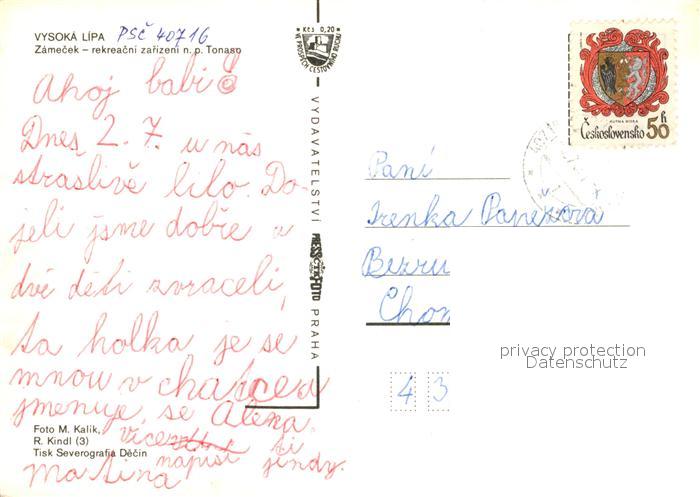 VYSOKÁ LÍPA PSČ 40716
Zámeček – rekreační zařízení n. p. Tonaso
Kčs 0,20
VE PROSPĚCH CESTOVNÍHO RUCHU
Ahoj babi!
Dnes 2. 7. u nás
straslivě lilo. Do-
jeli jsme dobře a
dvě děti zvraceli,
ta holka je se
mnou v chatce a
jmenuje se Alena.
Více ti
napíši jindy.
Martina
Foto M. Kalík,
R. Kindl (3)
Tisk Severografia Děčín
VYDAVATELSTVÍ PRESSFOTO PRAHA
KUTNÁ HORA
Československo 50 h
Paní
Irenka Panezova
Bezru
Cho
4 3
privacy protection
Datenschutz